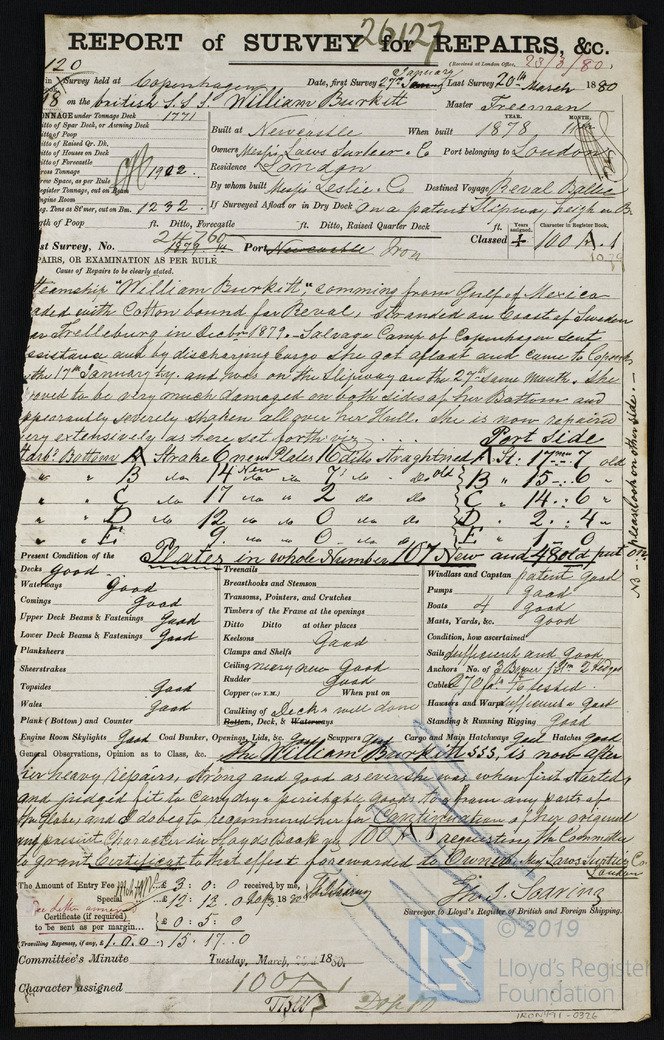 26127
REPORT of SURVEY for REPAIRS, &c.
(Received at London Office, 23/3/80.
120
in Survey held at Copenhagen Date, first Survey 27th January Last Survey 20th March 1880
on the british S.S.S. William Burkitt Master Freeman
TONNAGE under Tonnage Deck 1771
Ditto of Spar Deck, or Awning Deck
Ditto of Poop
Ditto of Raised Qr. Dk.
Ditto of Houses on Deck
Ditto of Forecastle
Gross Tonnage 1902
Crew Space, as per Rule
Register Tonnage, cut on Beam
Engine Room
Reg. Tons as St'mer, cut on Bm. 1232
Built at Newcastle When built YEAR. 1878 MONTH.
Owners Messrs Laws Surtees & Co Port belonging to London
Residence London
By whom built Messrs Leslie & Co Destined Voyage Reval Baltic
If Surveyed Afloat or in Dry Dock On a patent Slipway
Length of Poop ft. Ditto, Forecastle ft. Ditto, Raised Quarter Deck ft.
Last Survey, No. 24760 Port Newcastle Iron Classed Years assigned. Character in Register Book, 100 A.1
REPAIRS, OR EXAMINATION AS PER RULE
Cause of Repairs to be clearly stated.
Steamship "William Burkitt," comming from Gulf of Mexico
loaded with Cotton bound for Reval, stranded on Coast of Sweden
near Trelleburg in Decbr 1879. Salvage Comp of Copenhagen sent
assistance and by discharging Cargo she got afloat and came to Copenh
the 17th January and was on the Slipway on the 27th same month. She
proved to be very much damaged on both sides of her Bottom and
appearantly severely shaken all over her Hull. She is now repaired
very extensively as here set forth viz
Port Side
Starb Bottom A Strake 6 new Plates 16 ditto straghtned A St: 17 new 7 old
" " B do 14 New do 7 do Do old B " 15 " 6 "
" " C do 17 do 2 do do C " 14 " 6 "
" " D do 12 do 0 do do D " 2 " 4 "
" " E do 9 do 0 do do E " 1 " 0
Plates in whole Number 107 New and 48 old put on
NB. please look on other side.
Present Condition of the
Decks good
Waterways Good
Comings Good
Upper Deck Beams & Fastenings Good
Lower Deck Beams & Fastenings Good
Planksheers
Sheerstrakes
Topsides Good
Wales Good
Plank (Bottom) and Counter
Treenails
Breasthooks and Stemson
Transoms, Pointers, and Crutches
Timbers of the Frame at the openings
Ditto Ditto at other places
Keelsons Good
Clamps and Shelfs
Ceiling neary new Good
Rudder Good
Copper (or Y.M.) When put on
Caulking of Decks well done
Bottom, Deck, & Waterways
Windlass and Capstan patent Good
Pumps Good
Boats 4 Good
Masts, Yards, &c. Good
Condition, how ascertained
Sails sufficient and Good
Anchors No. of 3 Bower 1 Stm 2 Kedges
Cables 270 fms tested
Hawsers and Warps sufficient & Good
Standing & Running Rigging Good
Engine Room Skylights Good Coal Bunker, Openings, Lids, &c. Good Scuppers Good Cargo and Main Hatchways Good Hatches Good
General Observations, Opinion as to Class, &c. The William Burkitt SSS, is now after
her heavy repairs, strong and good as ever she was when first started,
and judged fit to carry dry & perishable goods to & from any parts of
the Globe, and I do beg to recommend her for Continuation of her original
present Character in Lloyds Book viz 100 A 1 requesting the Committee
to grant Certificate to that effect forewarded to Owners Messrs Laws Surtees & Co.
London
The Amount of Entry Fee £ 3 : 0 : 0 received by me,
Special £ 12 : 12 . 0 1880
Certificate (if required) £ 0 : 5 : 0
to be sent as per margin...
(Travelling Expenses, if any, £ 1.0.0) 15 17..0
Surveyor to Lloyd's Register of British and Foreign Shipping.
Committee's Minute Tuesday, March, 1880.
Character assigned 100 A 1
© 2019
LR
Lloyd's Register
Foundation
IRON491-0326